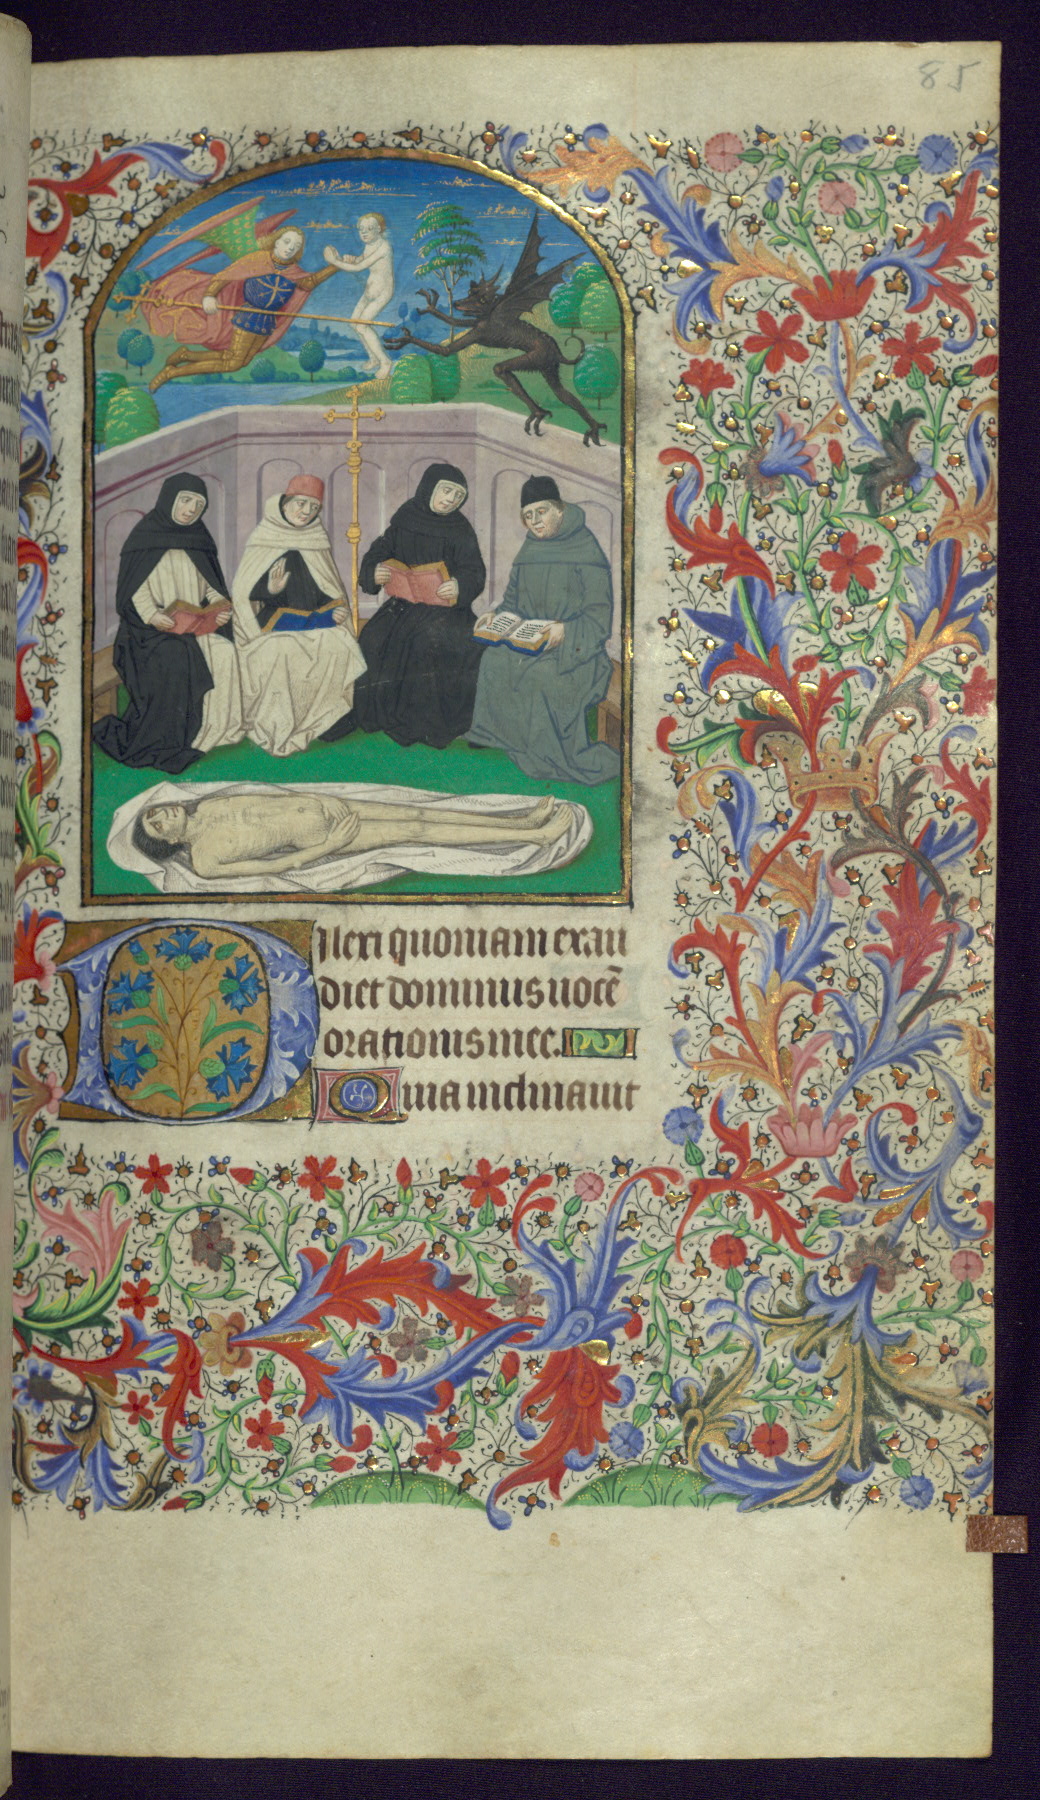 85
Dilexi quoniam exau
diet dominus uocē
orationis mee.
Quia inclinauit